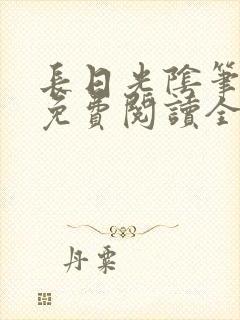 長日光陰筆
免費閱讀全
丹粟